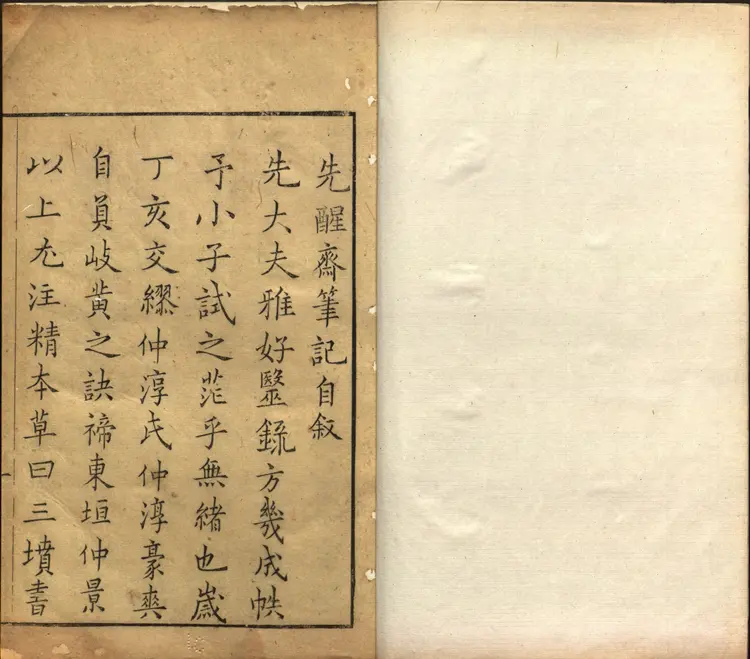 先醒齋筆記自敘
先大夫雅好毉錄方幾成帙
予小子試之茫乎無緒也歲
丁亥交繆仲淳氏仲淳豪爽
自負岐黃之訣禘東垣仲景
以上尤注精本草曰三墳書